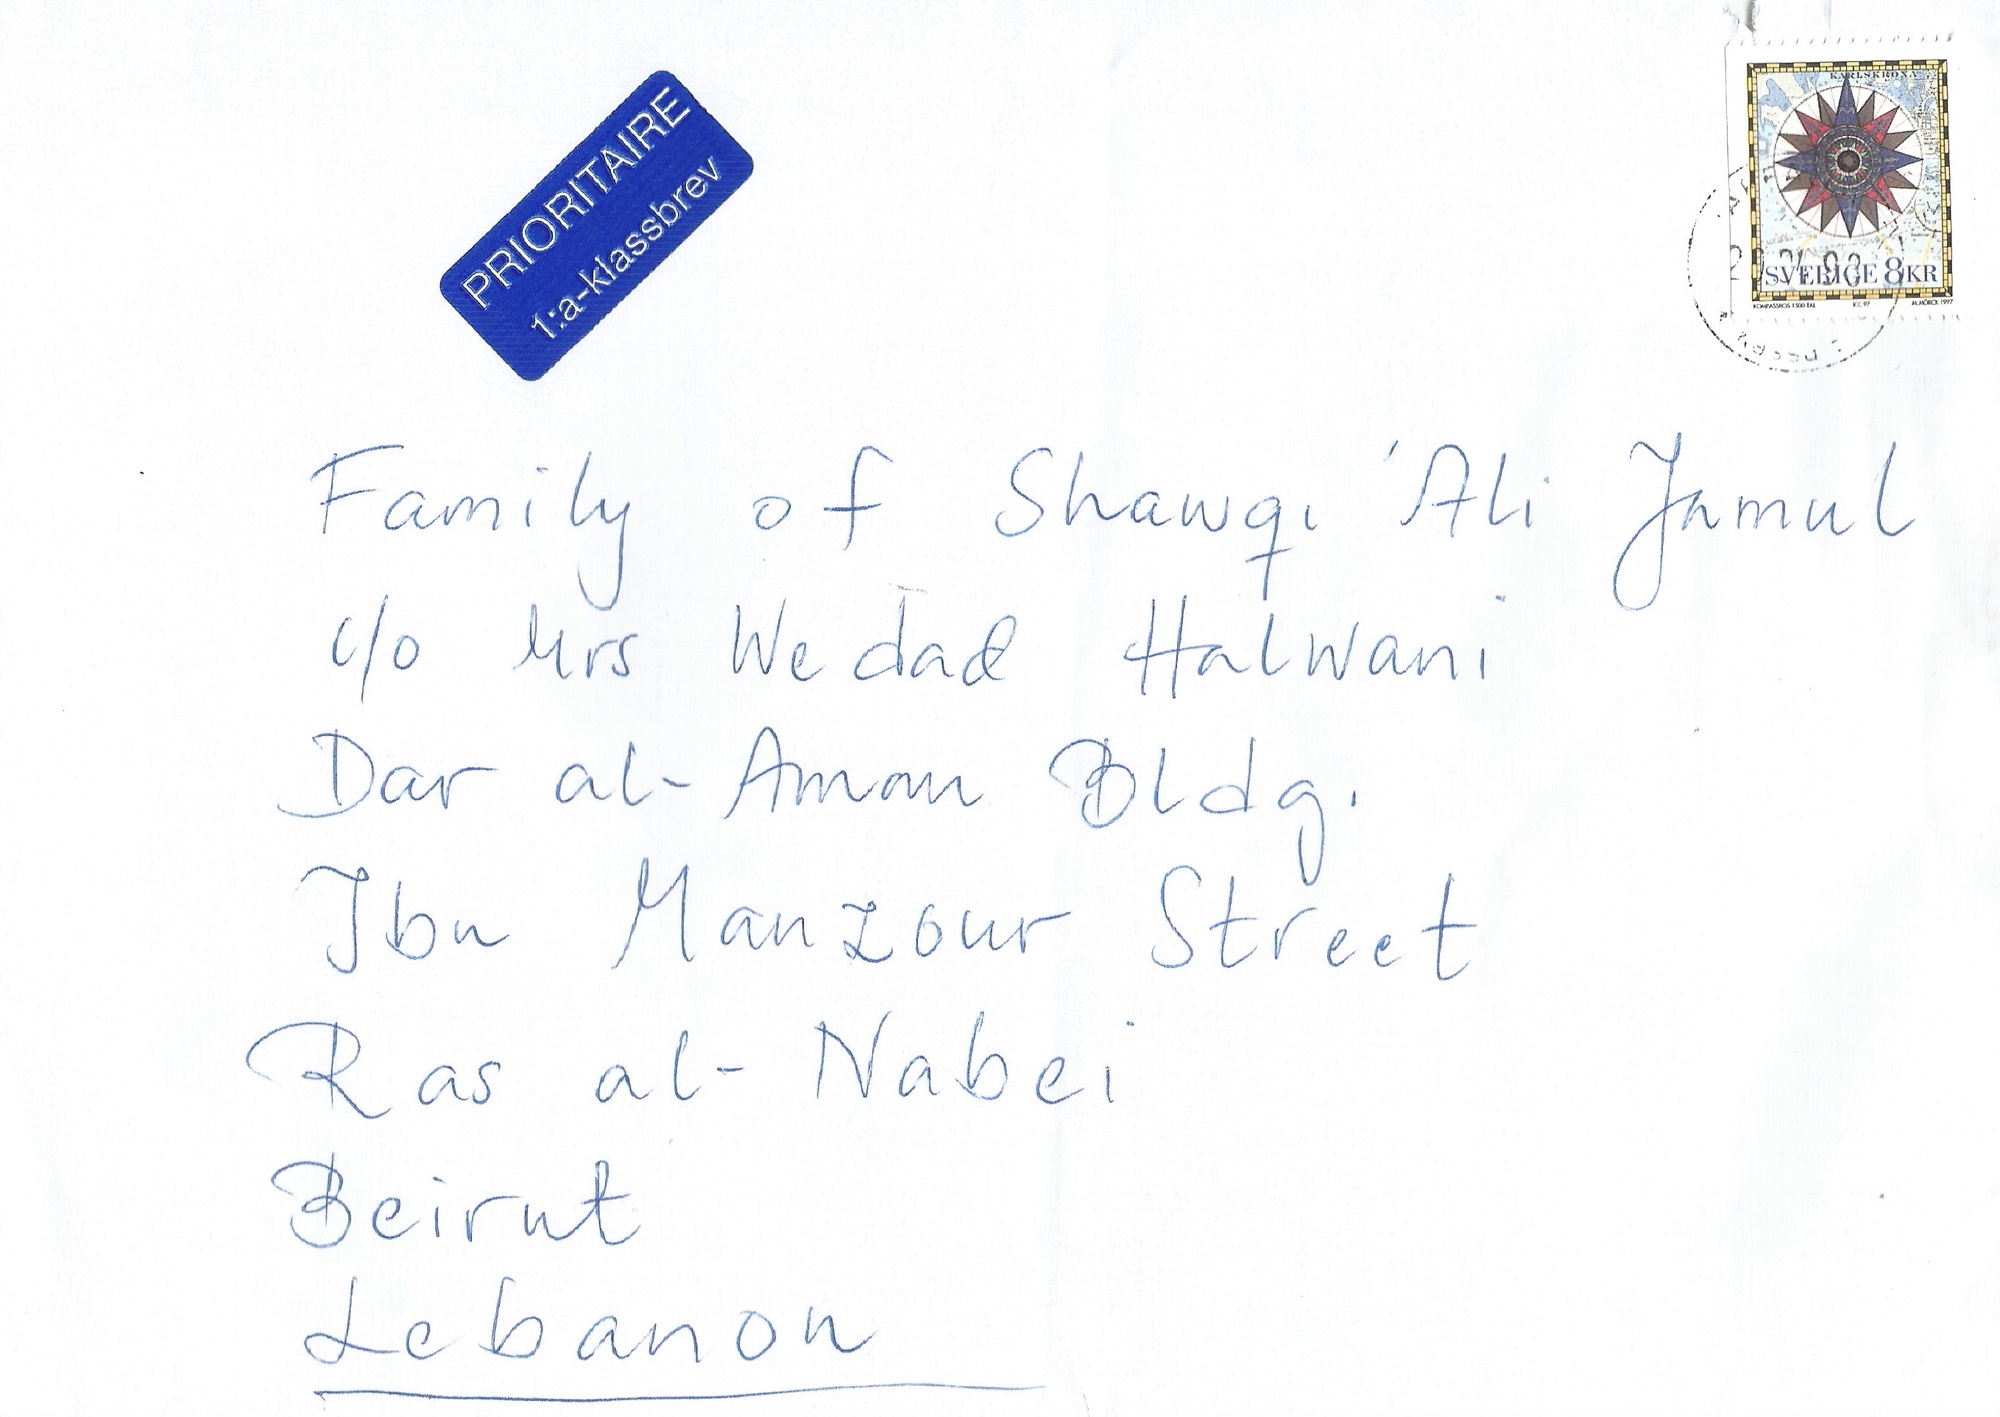 PRIORITAIRE
1:a-klassbrev
KARLSKRONA
SVERIGE 8KR
KOMPASSROS 1500 TAL KC 97 M.MÖRCK 1997
Family of Shawqi 'Ali Jamul
c/o Mrs Wedad Halwani
Dar al-Aman Bldg.
Ibn Manzour Street
Ras al-Nabei
Beirut
Lebanon